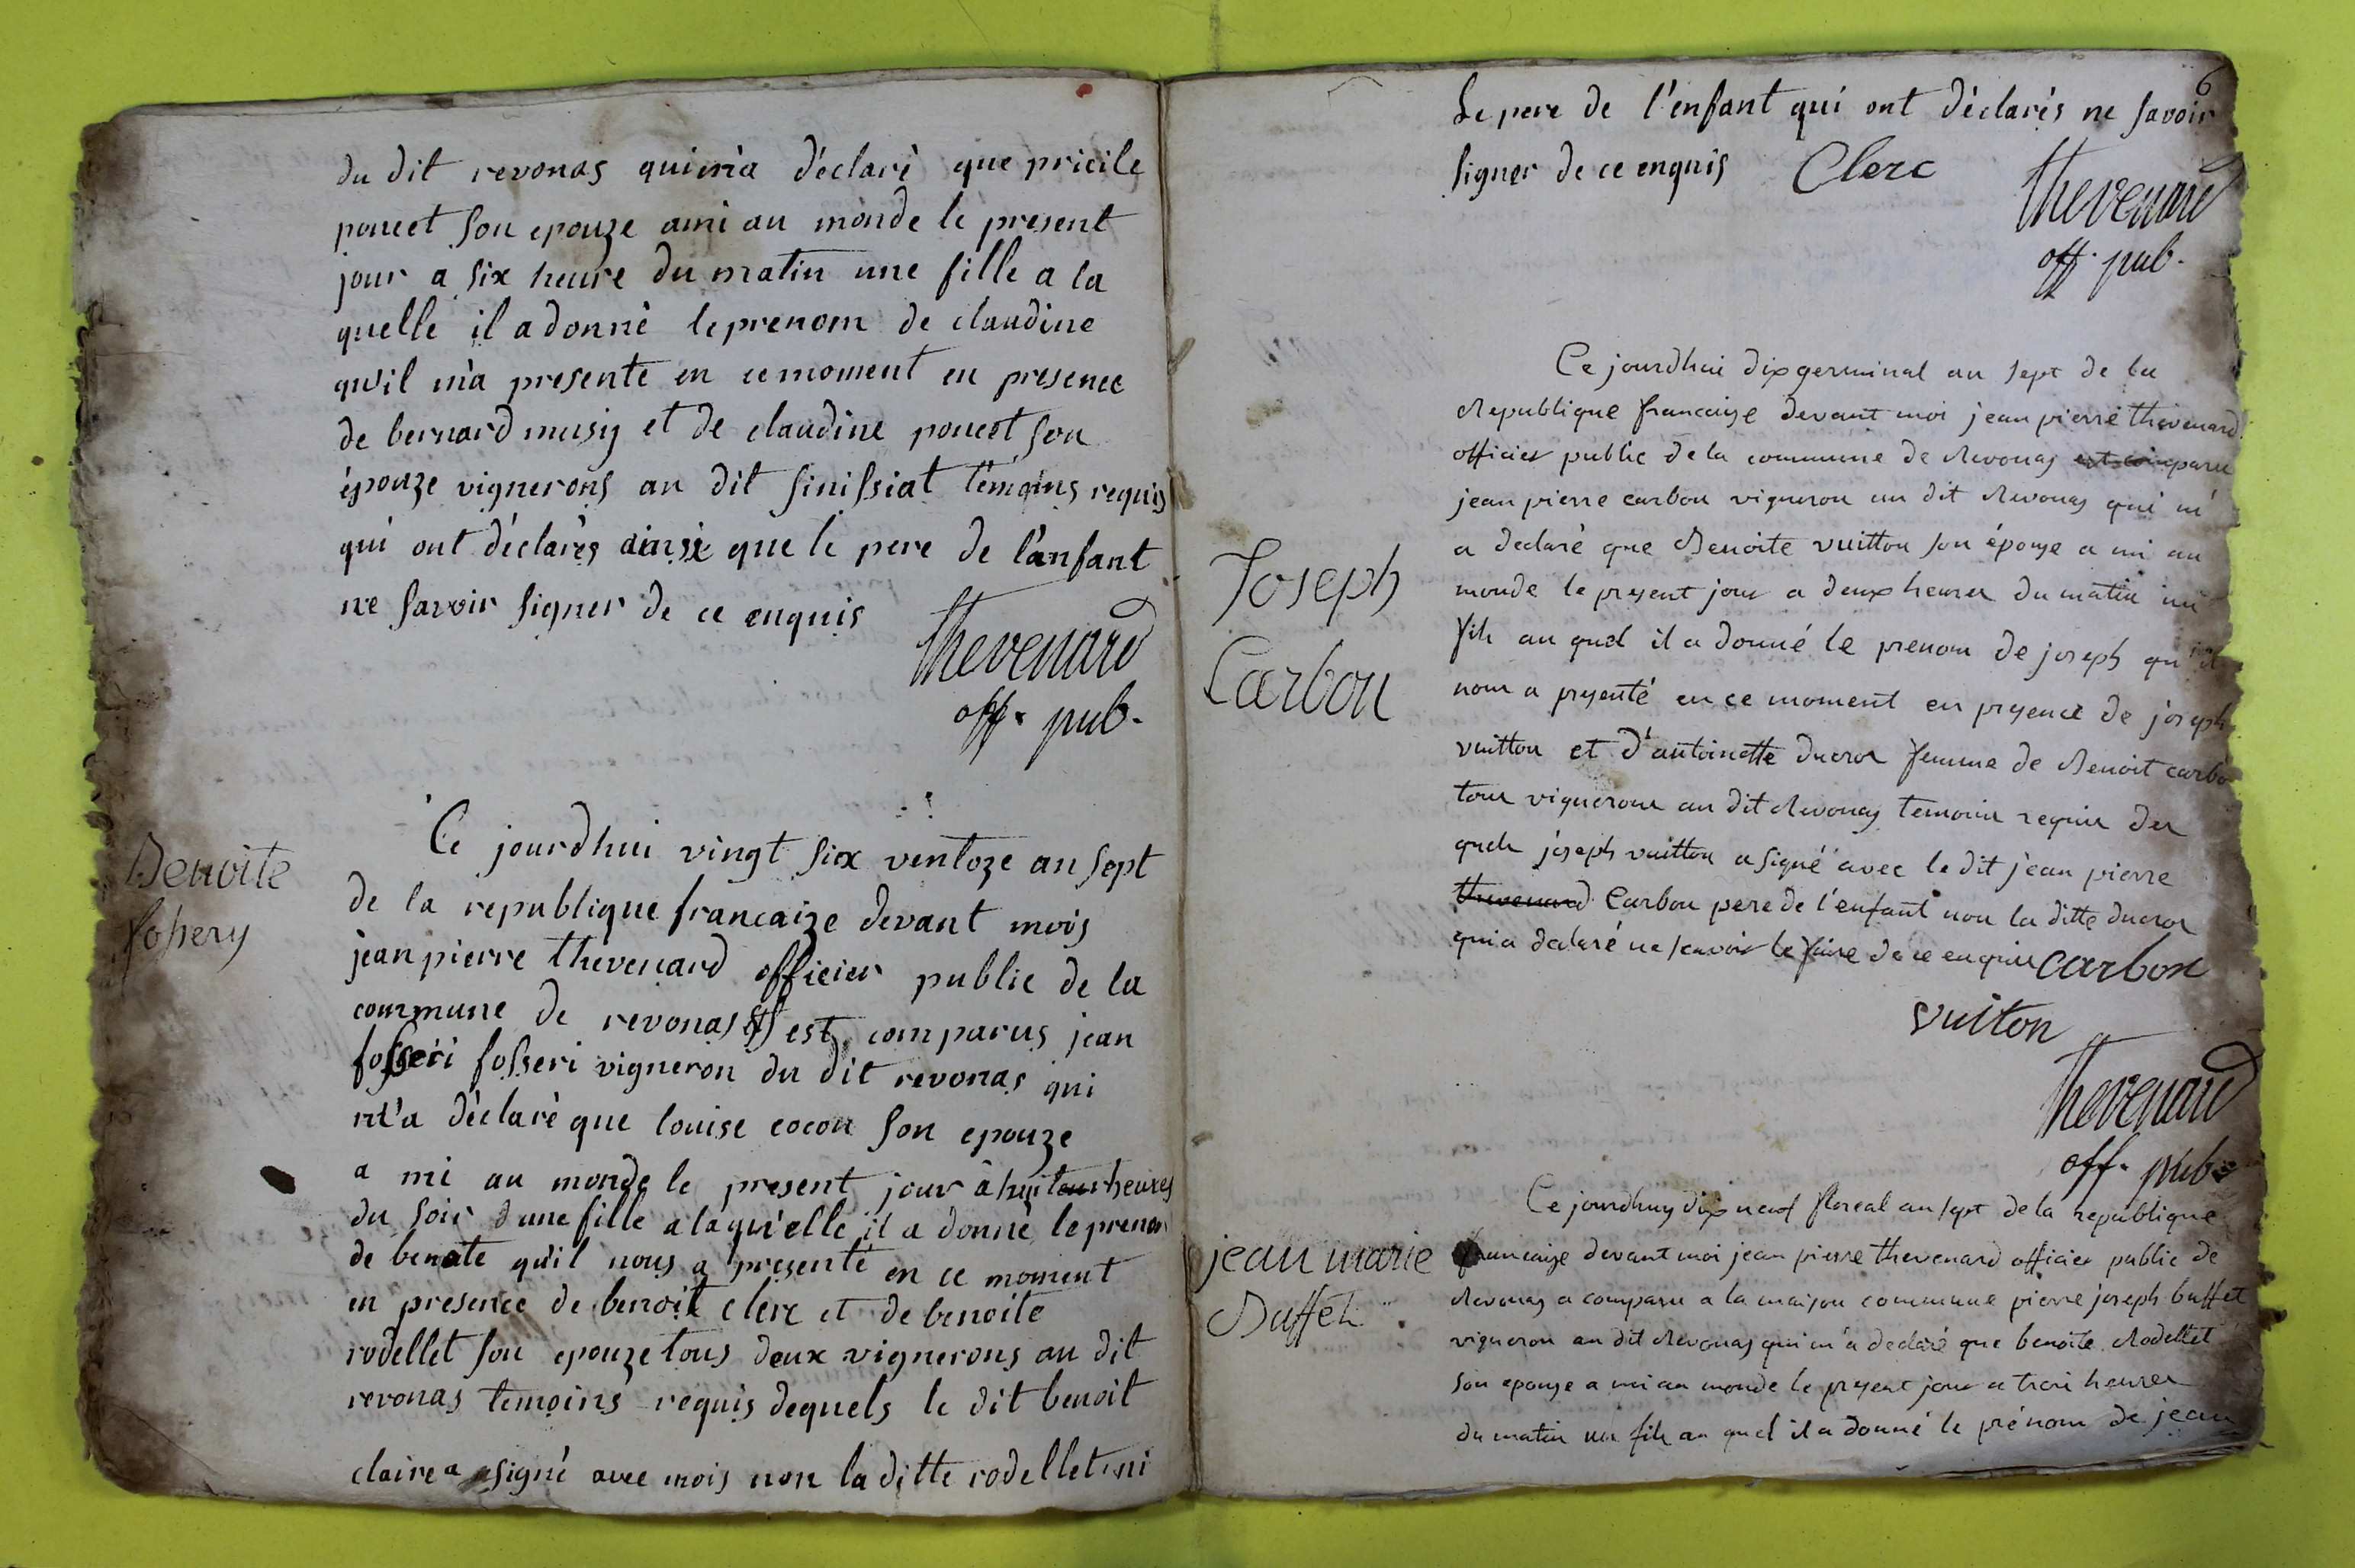 du dit revonas qui m'a déclaré que pricile
poncet son epouze a mi au monde le present
jour a six heure du matin une fille a la
quelle il a donné le prenom de claudine
qu'il m'a presente en ce moment en presence
de bernard musy et de claudine poncet son
épouze vignerons au dit sinissiat témoins requis
qui ont déclarés ainsi que le pere de l'anfant
ne savoir signer de ce enquis
thevenard
off. pub.
Benoite
fossery
Ce jourdhui vingt six ventoze an sept
de la republique francaize devant mois
jean pierre thevenard officier public de la
commune de revonas est comparus jean
fosseri fosseri vigneron du dit revonas qui
m'a déclaré que louise cocon son epouze
a mi au monde le present jour à huit heures
du soir d'une fille a laqu'elle il a donné le prenom
de benoite qu'il nous a presenté en ce moment
en presence de benoit clerc et de benoite
rodellet son epouze tous deux vignerons au dit
revonas temoins requis dequels le dit benoit
claire a signé avec mois non la ditte rodellet ni
6
Le pere de l'enfant qui ont déclarés ne savoir
signer de ce enquis Clerc
thevenard
off. pub.
Joseph
Carbon
Ce jourdhui dix germinal an sept de la
Republique francaize devant moi jean pierre thevenard
officier public de la commune de Revonas est comparu
jean pierre carbon vigneron au dit Revonas qui m'
a declaré que Benoite vuitton son épouze a mi au
monde le present jour a deux heures du matin un
fils au quel il a donné le prenom de joseph qu'il
nous a presenté en ce moment en presence de joseph
vuitton et d'antoinette ducros femme de Benoit carbon
tous vignerons au dit Revonas temoins requis des
quels joseph vuitton a signé avec le dit jean pierre
thevenard Carbon pere de l'enfant non la ditte ducros
qui a declaré ne scavoir le faire de ce enquis carbon
vuiton
Thevenard
off. pub.
jean marie
Buffet
Ce jourdhuy dix neuf floreal an sept de la republique
francaize devant moi jean pierre thevenard officier public de
Revonas a comparu a la maison commune pierre joseph buffet
vigneron au dit Revonas qui m'a declaré que benoite Rodellet
son epouze a mi au monde le present jour a trois heures
du matin un fils au quel il a donné le prénom de jean